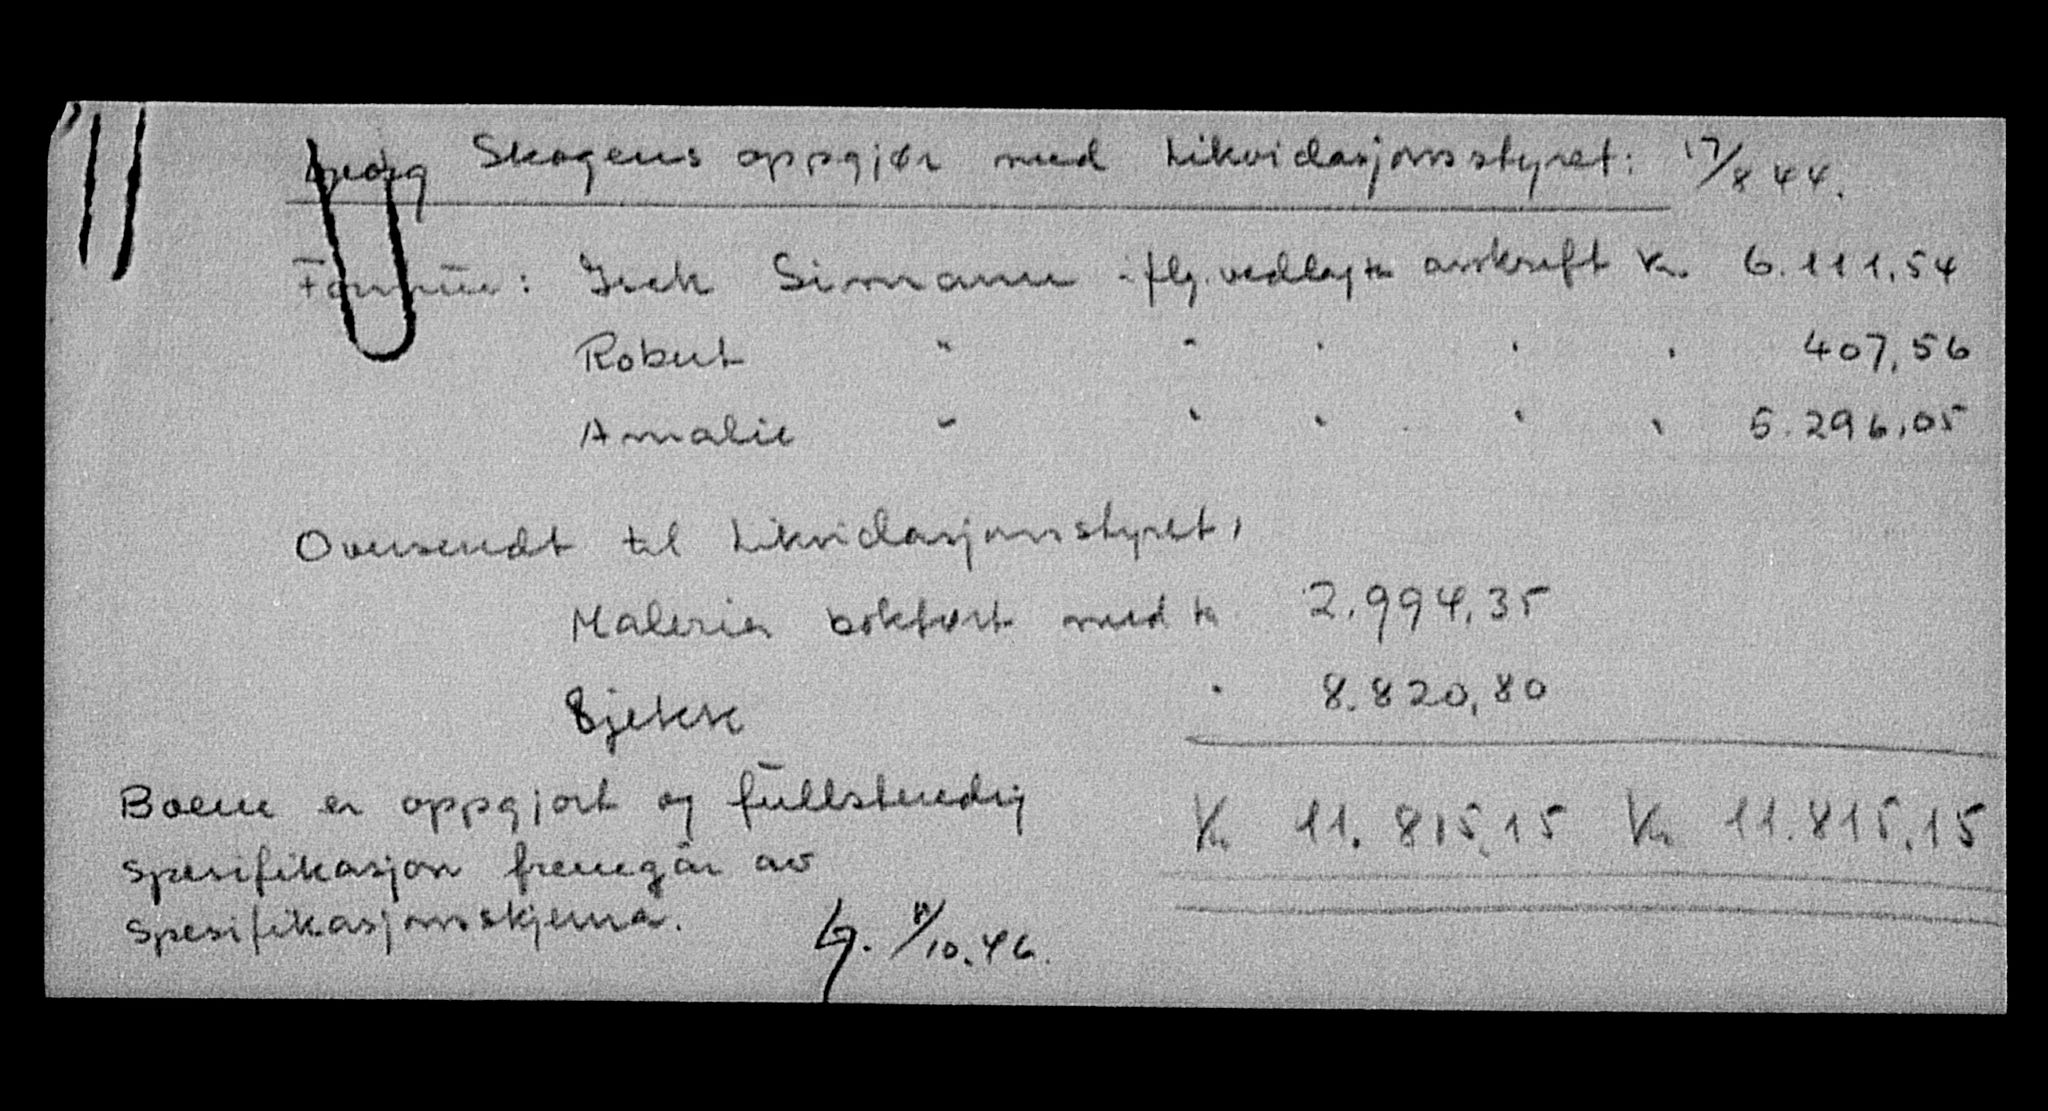 Georg Skogens oppgjør med Likvidasjonsstyret: 17/8 44.
Formue: Isak Simann flg. vedlagte avskrift Kr. 6.111,54
Robert " " " " " 407,56
Amalie " " " " " 5.296,05
Oversendt til Likvidasjonsstyret,
Malerier bokført med kr 2.994,35
Sjekk " 8.820,80
Kr. 11.815,15 Kr. 11.815,15
Boene er oppgjort og fullstendig
spesifikasjon fremgår av
spesifikasjonsskjema.
/10.46.